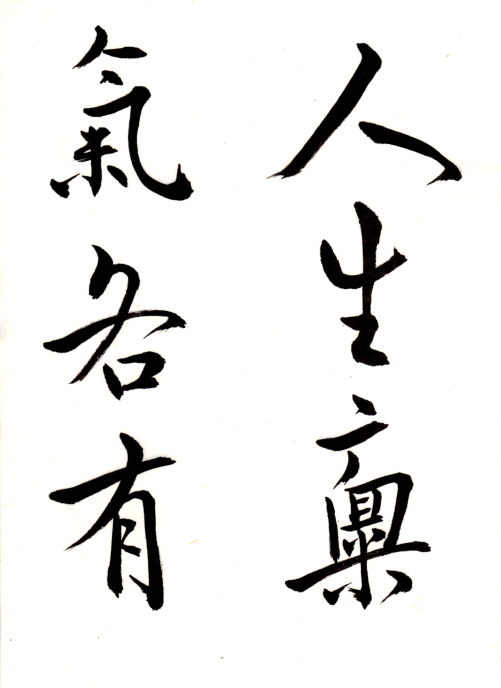 人生稟
氣各有